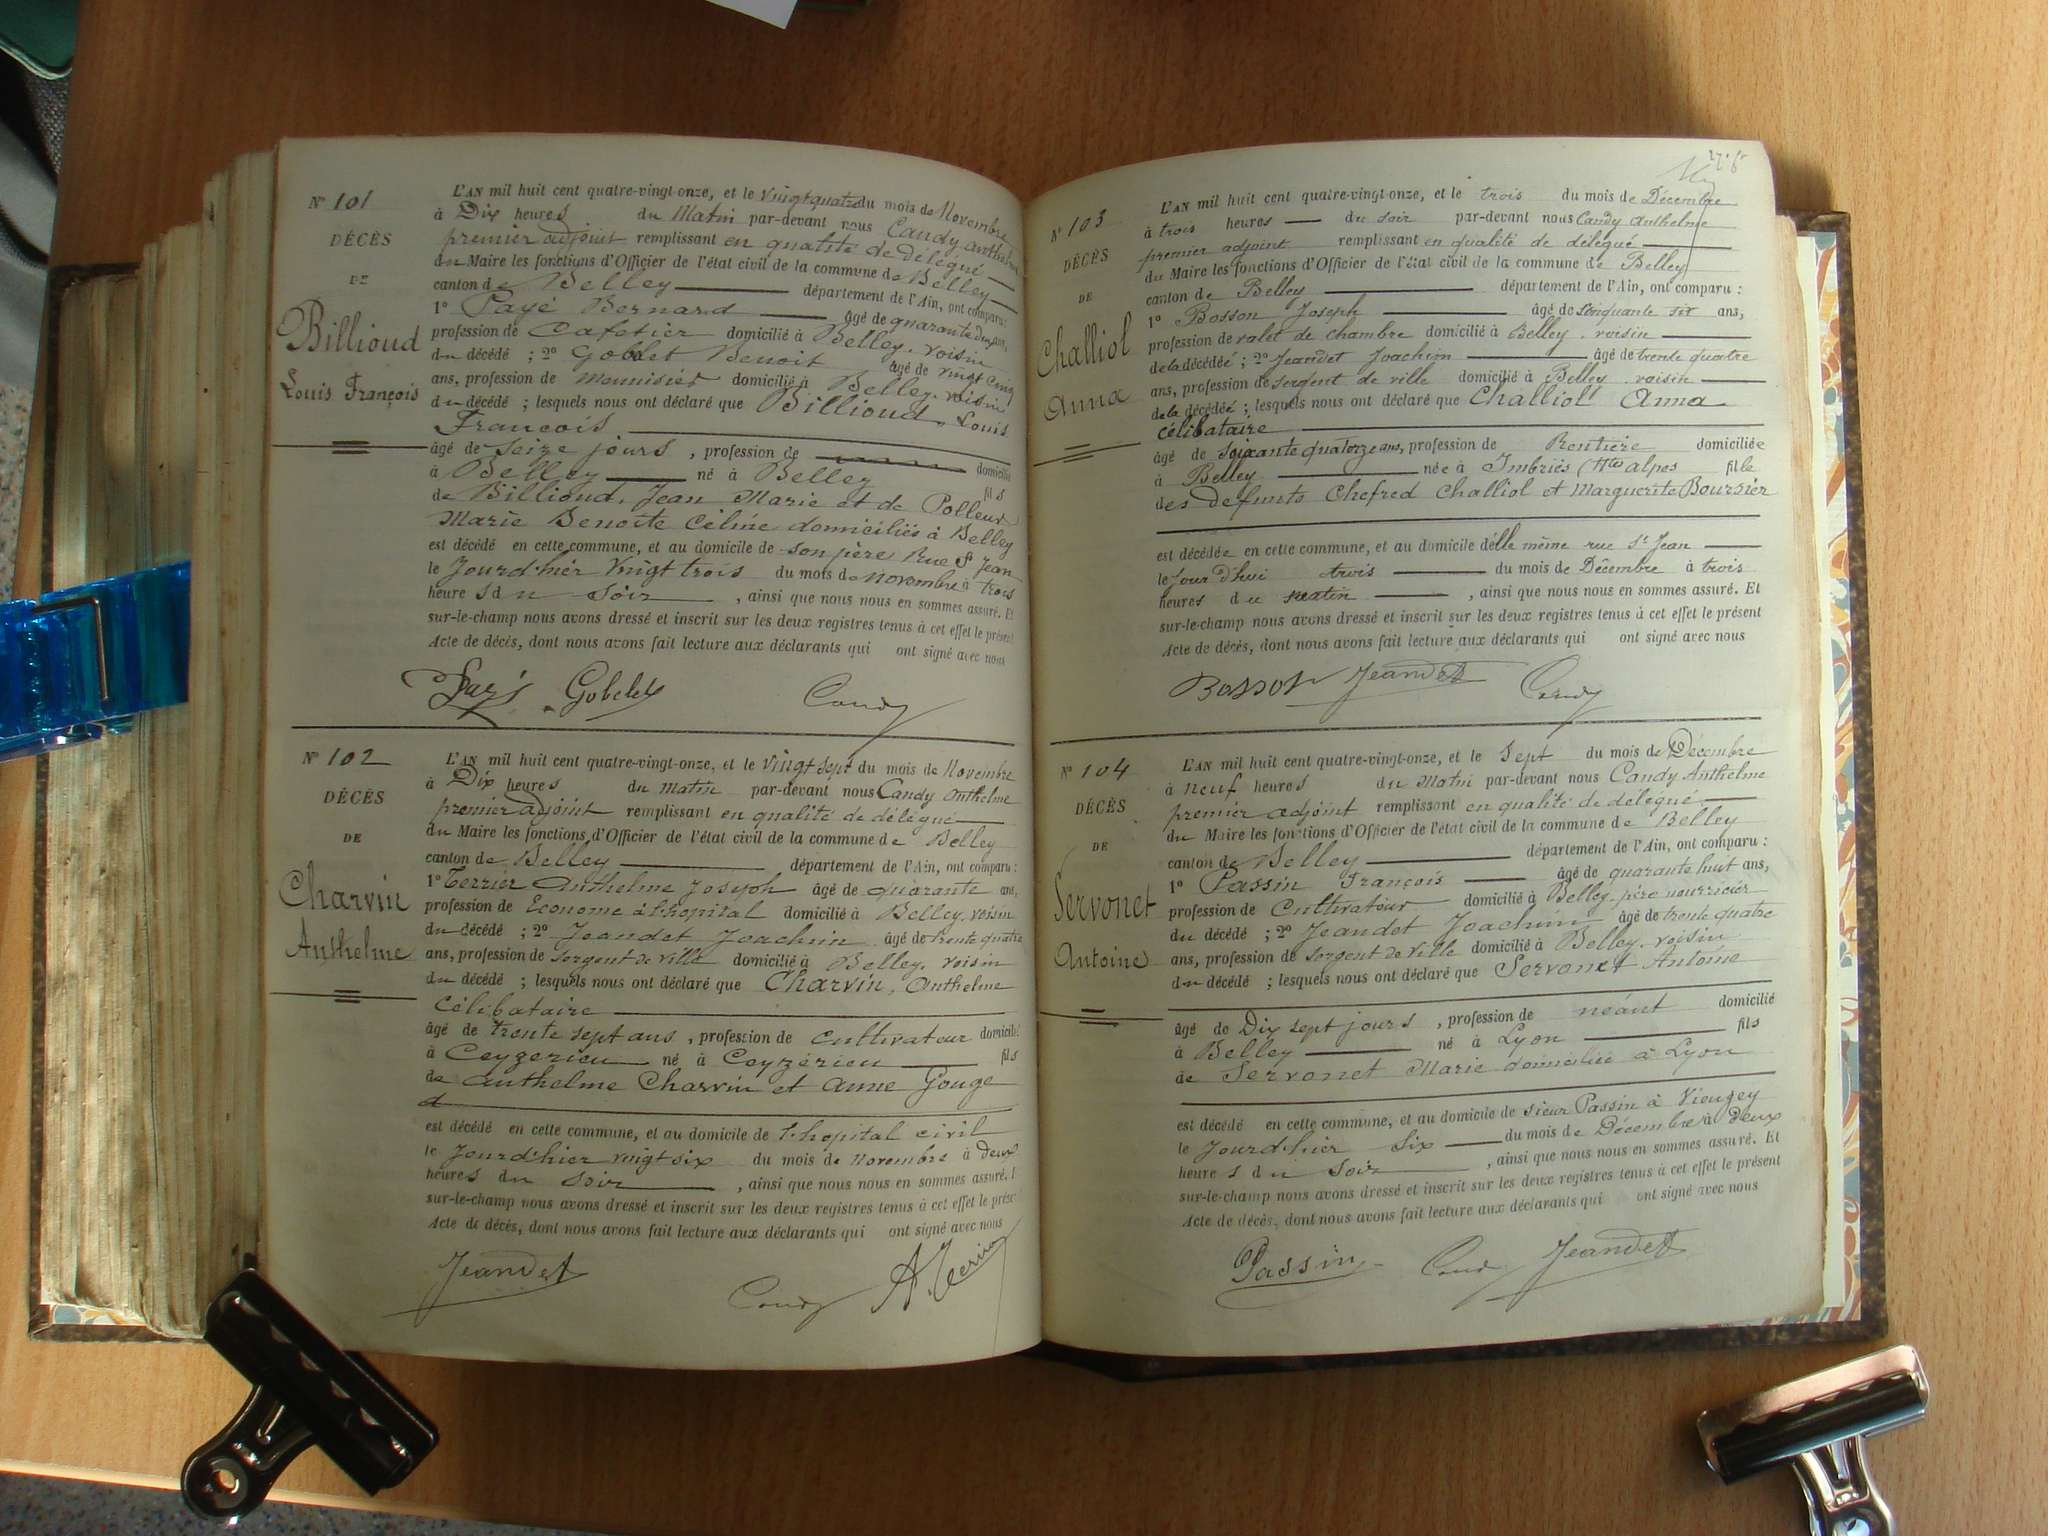 N° 101
DÉCÈS
DE
Billioud
Louis François
L'AN mil huit cent quatre-vingt-onze, et le vingt quatre du mois de Novembre
à Dix heures du Matin par-devant nous Candy anthelme
premier adjoint remplissant en qualité de délégué
du Maire les fonctions d'Officier de l'état civil de la commune de Belley
canton de Belley département de l'Ain, ont comparu :
1° Payé Bernard âgé de quarante ans,
profession de Cafetier domicilié à Belley, voisin
du décédé ; 2° Goblet Benoit âgé de vingt cinq
ans, profession de Menuisier domicilié à Belley, voisin
du décédé ; lesquels nous ont déclaré que Billioud, Louis
François
âgé de seize jours, profession de domicilié
à Belley né à Belley fils
de Billioud, Jean Marie et de Polleur
Marie Benoite Céline domiciliés à Belley
est décédé en cette commune, et au domicile de son père Rue St Jean
le Jourd'hier vingt trois du mois de Novembre à trois
heures du soir, ainsi que nous nous en sommes assuré. Et
sur-le-champ nous avons dressé et inscrit sur les deux registres tenus à cet effet le présent
Acte de décès, dont nous avons fait lecture aux déclarants qui ont signé avec nous
Gobelet Candy
N° 102
DÉCÈS
DE
Charvin
Anthelme
L'AN mil huit cent quatre-vingt-onze, et le vingt sept du mois de Novembre
à Dix heures du matin par-devant nous Candy Anthelme
premier adjoint remplissant en qualité de délégué
du Maire les fonctions d'Officier de l'état civil de la commune de Belley
canton de Belley département de l'Ain, ont comparu :
1° Terrier Anthelme Joseph âgé de quarante ans,
profession de Econome à l'hopital domicilié à Belley, voisin
du décédé ; 2° Jeandet Joachim âgé de trente quatre
ans, profession de Sergent de ville domicilié à Belley, voisin
du décédé ; lesquels nous ont déclaré que Charvin, Anthelme
célibataire
âgé de trente sept ans, profession de cultivateur domicilié
à Ceyzerieu né à Ceyzérieu fils
de Anthelme Charvin et Anne Gouge
d
est décédé en cette commune, et au domicile de l'hopital civil
le Jourd'hier vingt six du mois de Novembre à deux
heures du soir, ainsi que nous nous en sommes assuré. E
sur-le-champ nous avons dressé et inscrit sur les deux registres tenus à cet effet le prése
Acte de décès, dont nous avons fait lecture aux déclarants qui ont signé avec nous
Jeandet Candy A. Terrier
N° 103
DÉCÈS
DE
Challiol
Anna
L'AN mil huit cent quatre-vingt-onze, et le trois du mois de Décembre
à trois heures du soir par-devant nous Candy Anthelme
premier adjoint remplissant en qualité de délégué
du Maire les fonctions d'Officier de l'état civil de la commune de Belley
canton de Belley département de l'Ain, ont comparu :
1° Bosson Joseph âgé de cinquante six ans,
profession de valet de chambre domicilié à Belley, voisin
de la décédée ; 2° Jeandet Joachim âgé de trente quatre
ans, profession de sergent de ville domicilié à Belley, voisin
de la décédée ; lesquels nous ont déclaré que Challiol Anna
célibataire
âgé de soixante quatorze ans, profession de Rentière domiciliée
à Belley née à Imbriès (Htes alpes fille
des defunts Chefred Challiol et Marguerite Boursier
est décédée en cette commune, et au domicile d'elle même rue St Jean
le Jour d'hui trois du mois de Décembre à trois
heures du matin, ainsi que nous nous en sommes assuré. Et
sur-le-champ nous avons dressé et inscrit sur les deux registres tenus à cet effet le présent
Acte de décès, dont nous avons fait lecture aux déclarants qui ont signé avec nous
Bosson Jeandet Candy
N° 104
DÉCÈS
DE
Servonet
Antoine
L'AN mil huit cent quatre-vingt-onze, et le Sept du mois de Décembre
à neuf heures du Matin par-devant nous Candy Anthelme
premier adjoint remplissant en qualité de délégué
du Maire les fonctions d'Officier de l'état civil de la commune de Belley
canton de Belley département de l'Ain, ont comparu :
1° Passin François âgé de quarante huit ans,
profession de Cultivateur domicilié à Belley, père nourricier
du décédé ; 2° Jeandet Joachim âgé de trente quatre
ans, profession de sergent de ville domicilié à Belley, voisin
du décédé ; lesquels nous ont déclaré que Servonet Antoine
âgé de Dix sept jours, profession de néant domicilié
à Belley né à Lyon fils
de Servonet Marie domiciliée à Lyon
est décédé en cette commune, et au domicile de sieur Passin à Vieugey
le Jourd'hier six du mois de Décembre à deux
heures du soir, ainsi que nous nous en sommes assuré. Et
sur-le-champ nous avons dressé et inscrit sur les deux registres tenus à cet effet le présent
Acte de décès, dont nous avons fait lecture aux déclarants qui ont signé avec nous
Passin Candy Jeandet